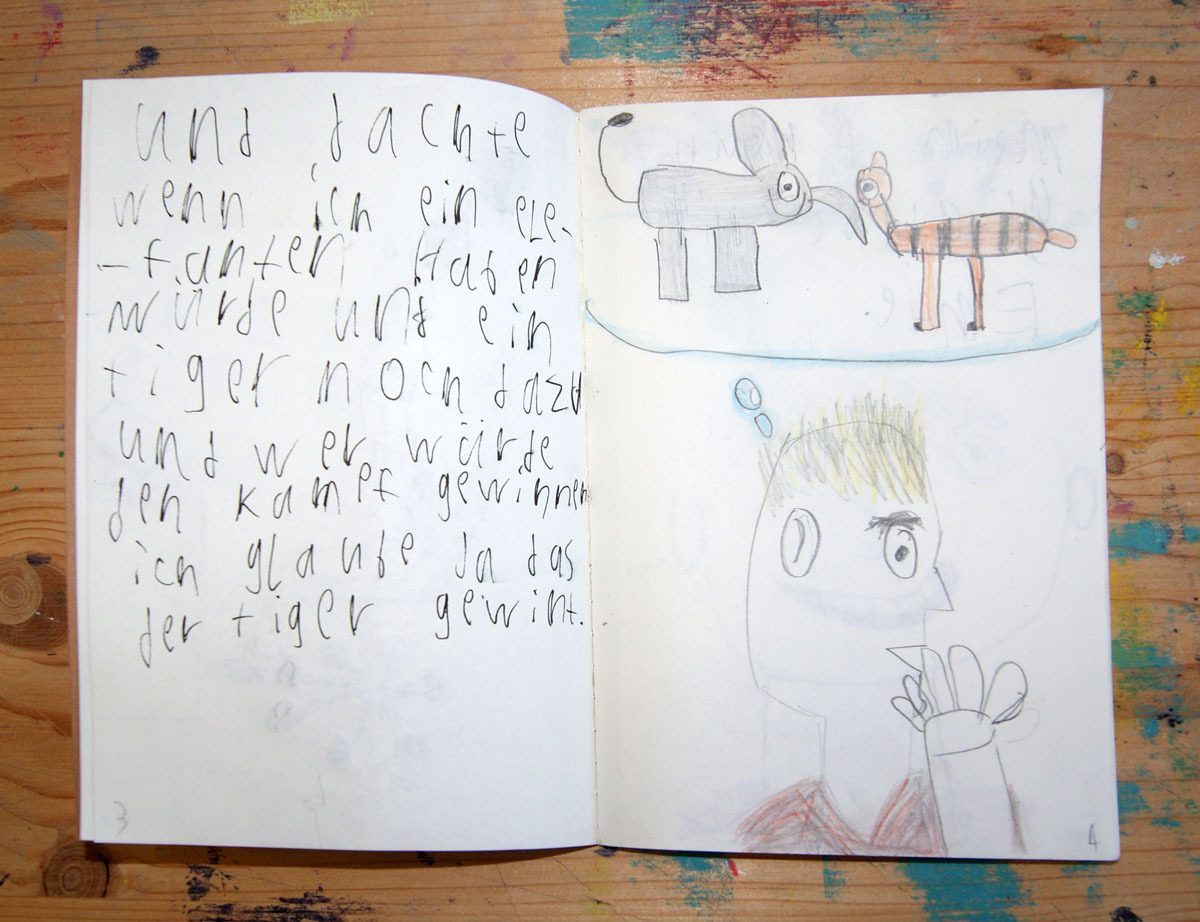 und dachte
wenn ich ein ele-
-fanten Haben
würde und ein
tiger noch dazu
und wer würde
den kamef gewinnen
ich glaube Ja das
der tiger gewint.
3
4